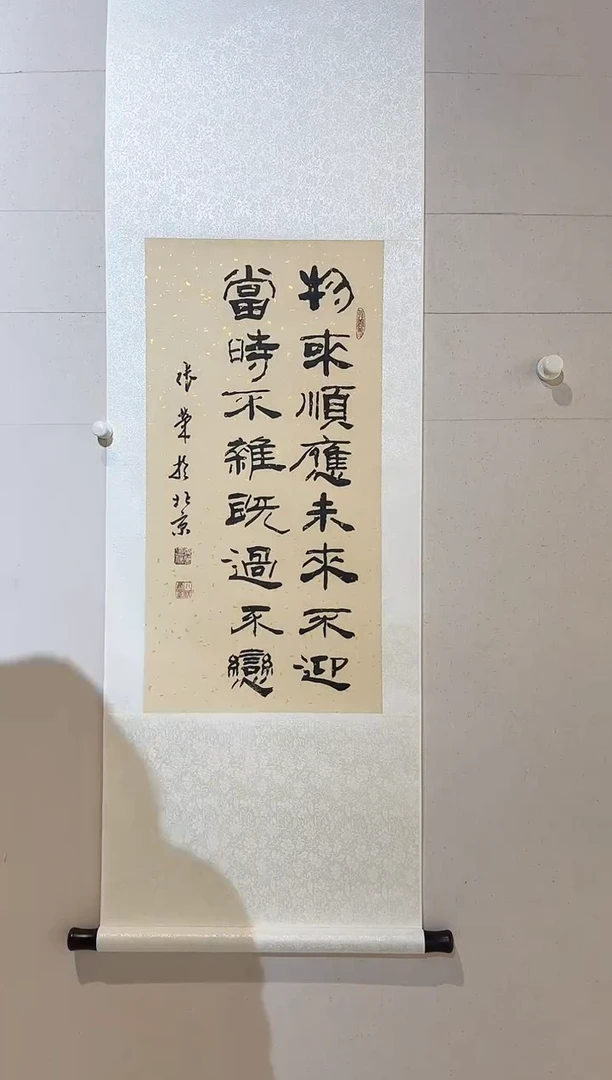 物来順應未來不迎
當時不雜既過不戀
張業於北京